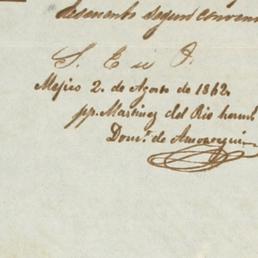 descuento segun conven
S. E. ú O.
Mejico 2. de Agosto de 1862.
pp. Martinez del Rio herm.
Dom.º de Amorequi